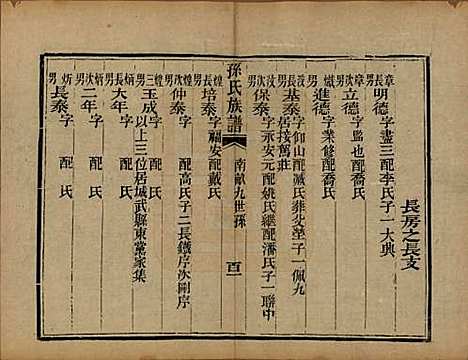 長房之長支
章長男 明德 字盡三配李氏子一大典
章次男 立德 字監也配喬氏
熾男 進德 字業修配喬氏
汝長男 基泰 字仰山配臧氏葬父塋子一佩九
居接萬莊
汝次男 保泰 字承安元配姚氏繼配潘氏子一聯中
孫氏族譜
南畝九世孫
百二
煌長男 培泰 字福安配戴氏
煌次男 仲泰 字 配高氏子二長鐵序次剛序
煌三男 玉成 以上三位居城武縣東黨家集
炳長男 大年 字 配 氏
炳次男 二年 字 配 氏
炘男 長泰 字 配 氏